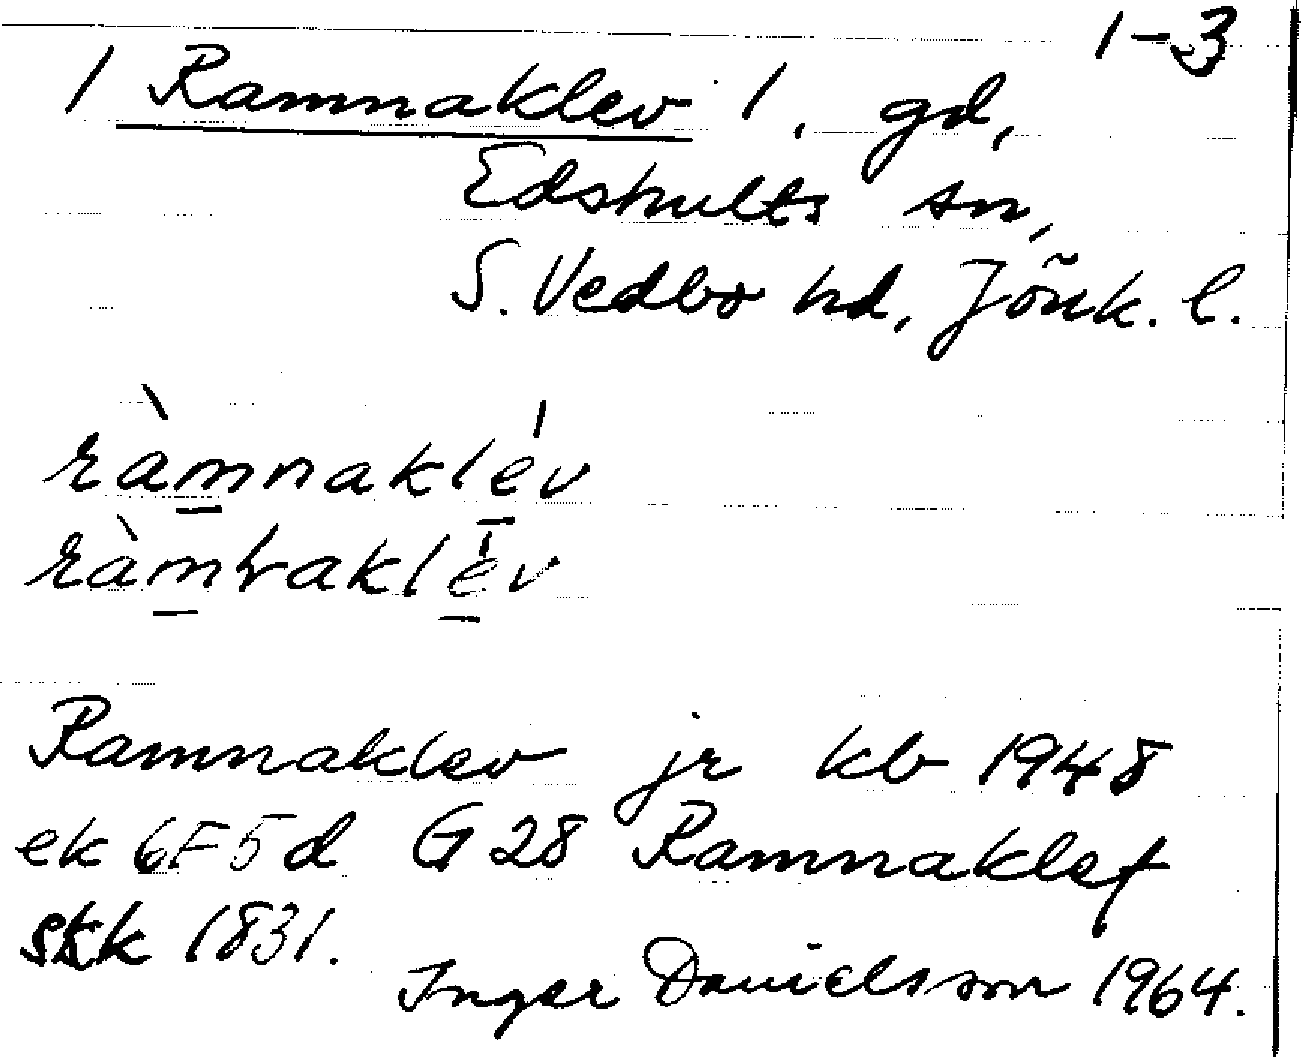 1-3
/ Ramnaklev /. gd,
Edshults sn,
S. Vedbo hd, Jönk. l.
ràmnaklév
ràmbaklév
Ramnaklev jr kb 1948
ek 6F5d G28 Ramnaklef
skk 1831.
Inger Danielsson 1964.